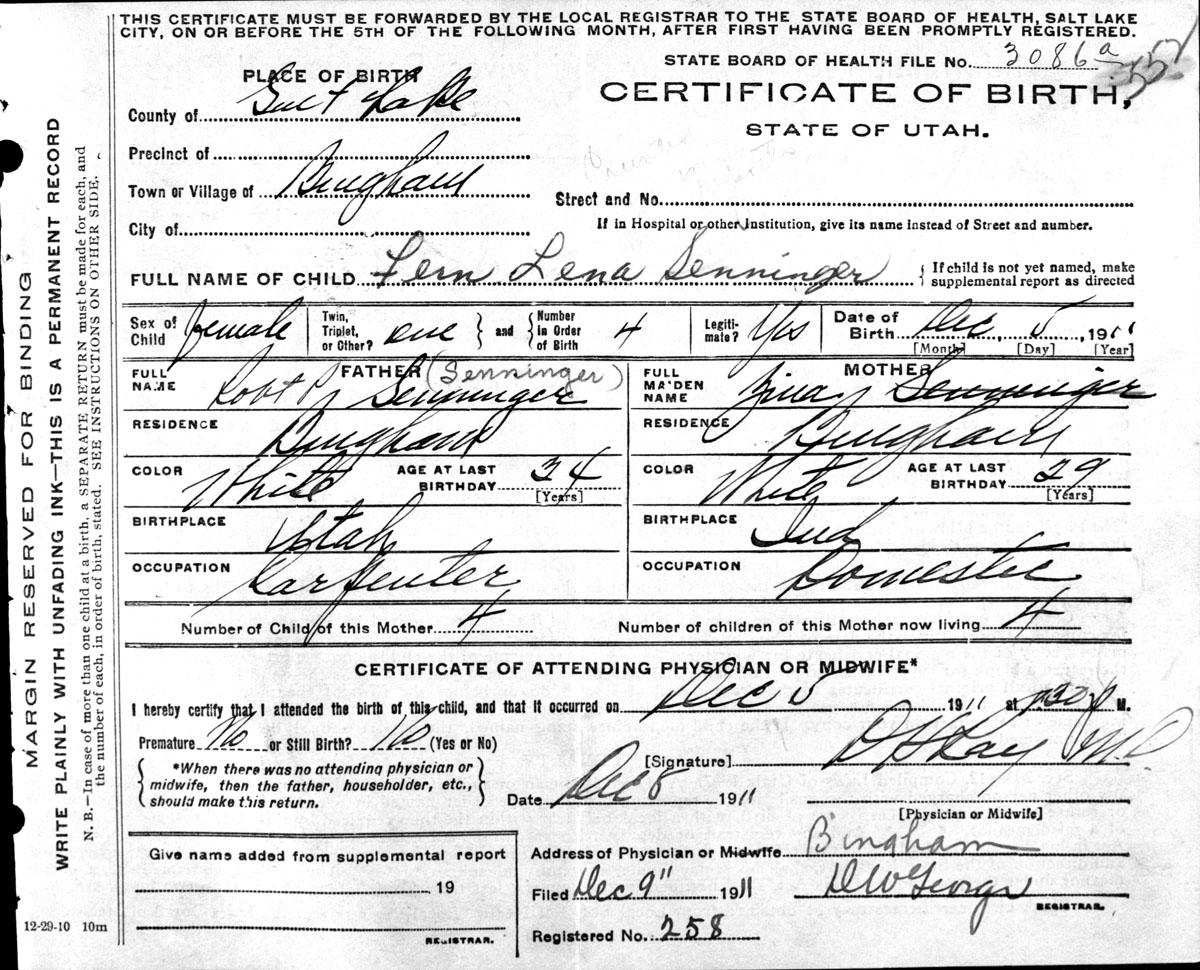 THIS CERTIFICATE MUST BE FORWARDED BY THE LOCAL REGISTRAR TO THE STATE BOARD OF HEALTH, SALT LAKE
CITY, ON OR BEFORE THE 5TH OF THE FOLLOWING MONTH, AFTER FIRST HAVING BEEN PROMPTLY REGISTERED.
STATE BOARD OF HEALTH FILE No. 3086a 551
PLACE OF BIRTH
CERTIFICATE OF BIRTH,
STATE OF UTAH.
County of Salt Lake
Precinct of
Town or Village of Bingham
Street and No.
City of
If in Hospital or other Institution, give its name instead of Street and number.
FULL NAME OF CHILD Fern Lena Senninger { If child is not yet named, make
supplemental report as directed
Sex of Child female
Twin, Triplet, or Other? one } and { Number in Order of Birth 4
Legitimate? Yes
Date of Birth Dec 5, 1911
[Month] [Day] [Year]
FATHER (Senninger)
FULL NAME Robt Senninger
RESIDENCE Bingham
COLOR White AGE AT LAST BIRTHDAY 34 [Years]
BIRTHPLACE Utah
OCCUPATION Carpenter
MOTHER
FULL MAIDEN NAME Senninger
RESIDENCE Bingham
COLOR White AGE AT LAST BIRTHDAY 29 [Years]
BIRTHPLACE Ind
OCCUPATION Domestic
Number of Child of this Mother 4 Number of children of this Mother now living 4
CERTIFICATE OF ATTENDING PHYSICIAN OR MIDWIFE*
I hereby certify that I attended the birth of this child, and that it occurred on Dec 5 1911 at 7:30 P M.
Premature No or Still Birth? No (Yes or No)
[Signature] Ray MD
{ *When there was no attending physician or
midwife, then the father, householder, etc.,
should make this return. }
Date Dec 8 1911
[Physician or Midwife]
Give name added from supplemental report
19
REGISTRAR.
Address of Physician or Midwife Bingham
Filed Dec 9" 1911 George
REGISTRAR.
Registered No. 258
12-29-10 10m
MARGIN RESERVED FOR BINDING
WRITE PLAINLY WITH UNFADING INK—THIS IS A PERMANENT RECORD
N. B.—In case of more than one child at a birth, a SEPARATE RETURN must be made for each, and
the number of each, in order of birth, stated. SEE INSTRUCTIONS ON OTHER SIDE.